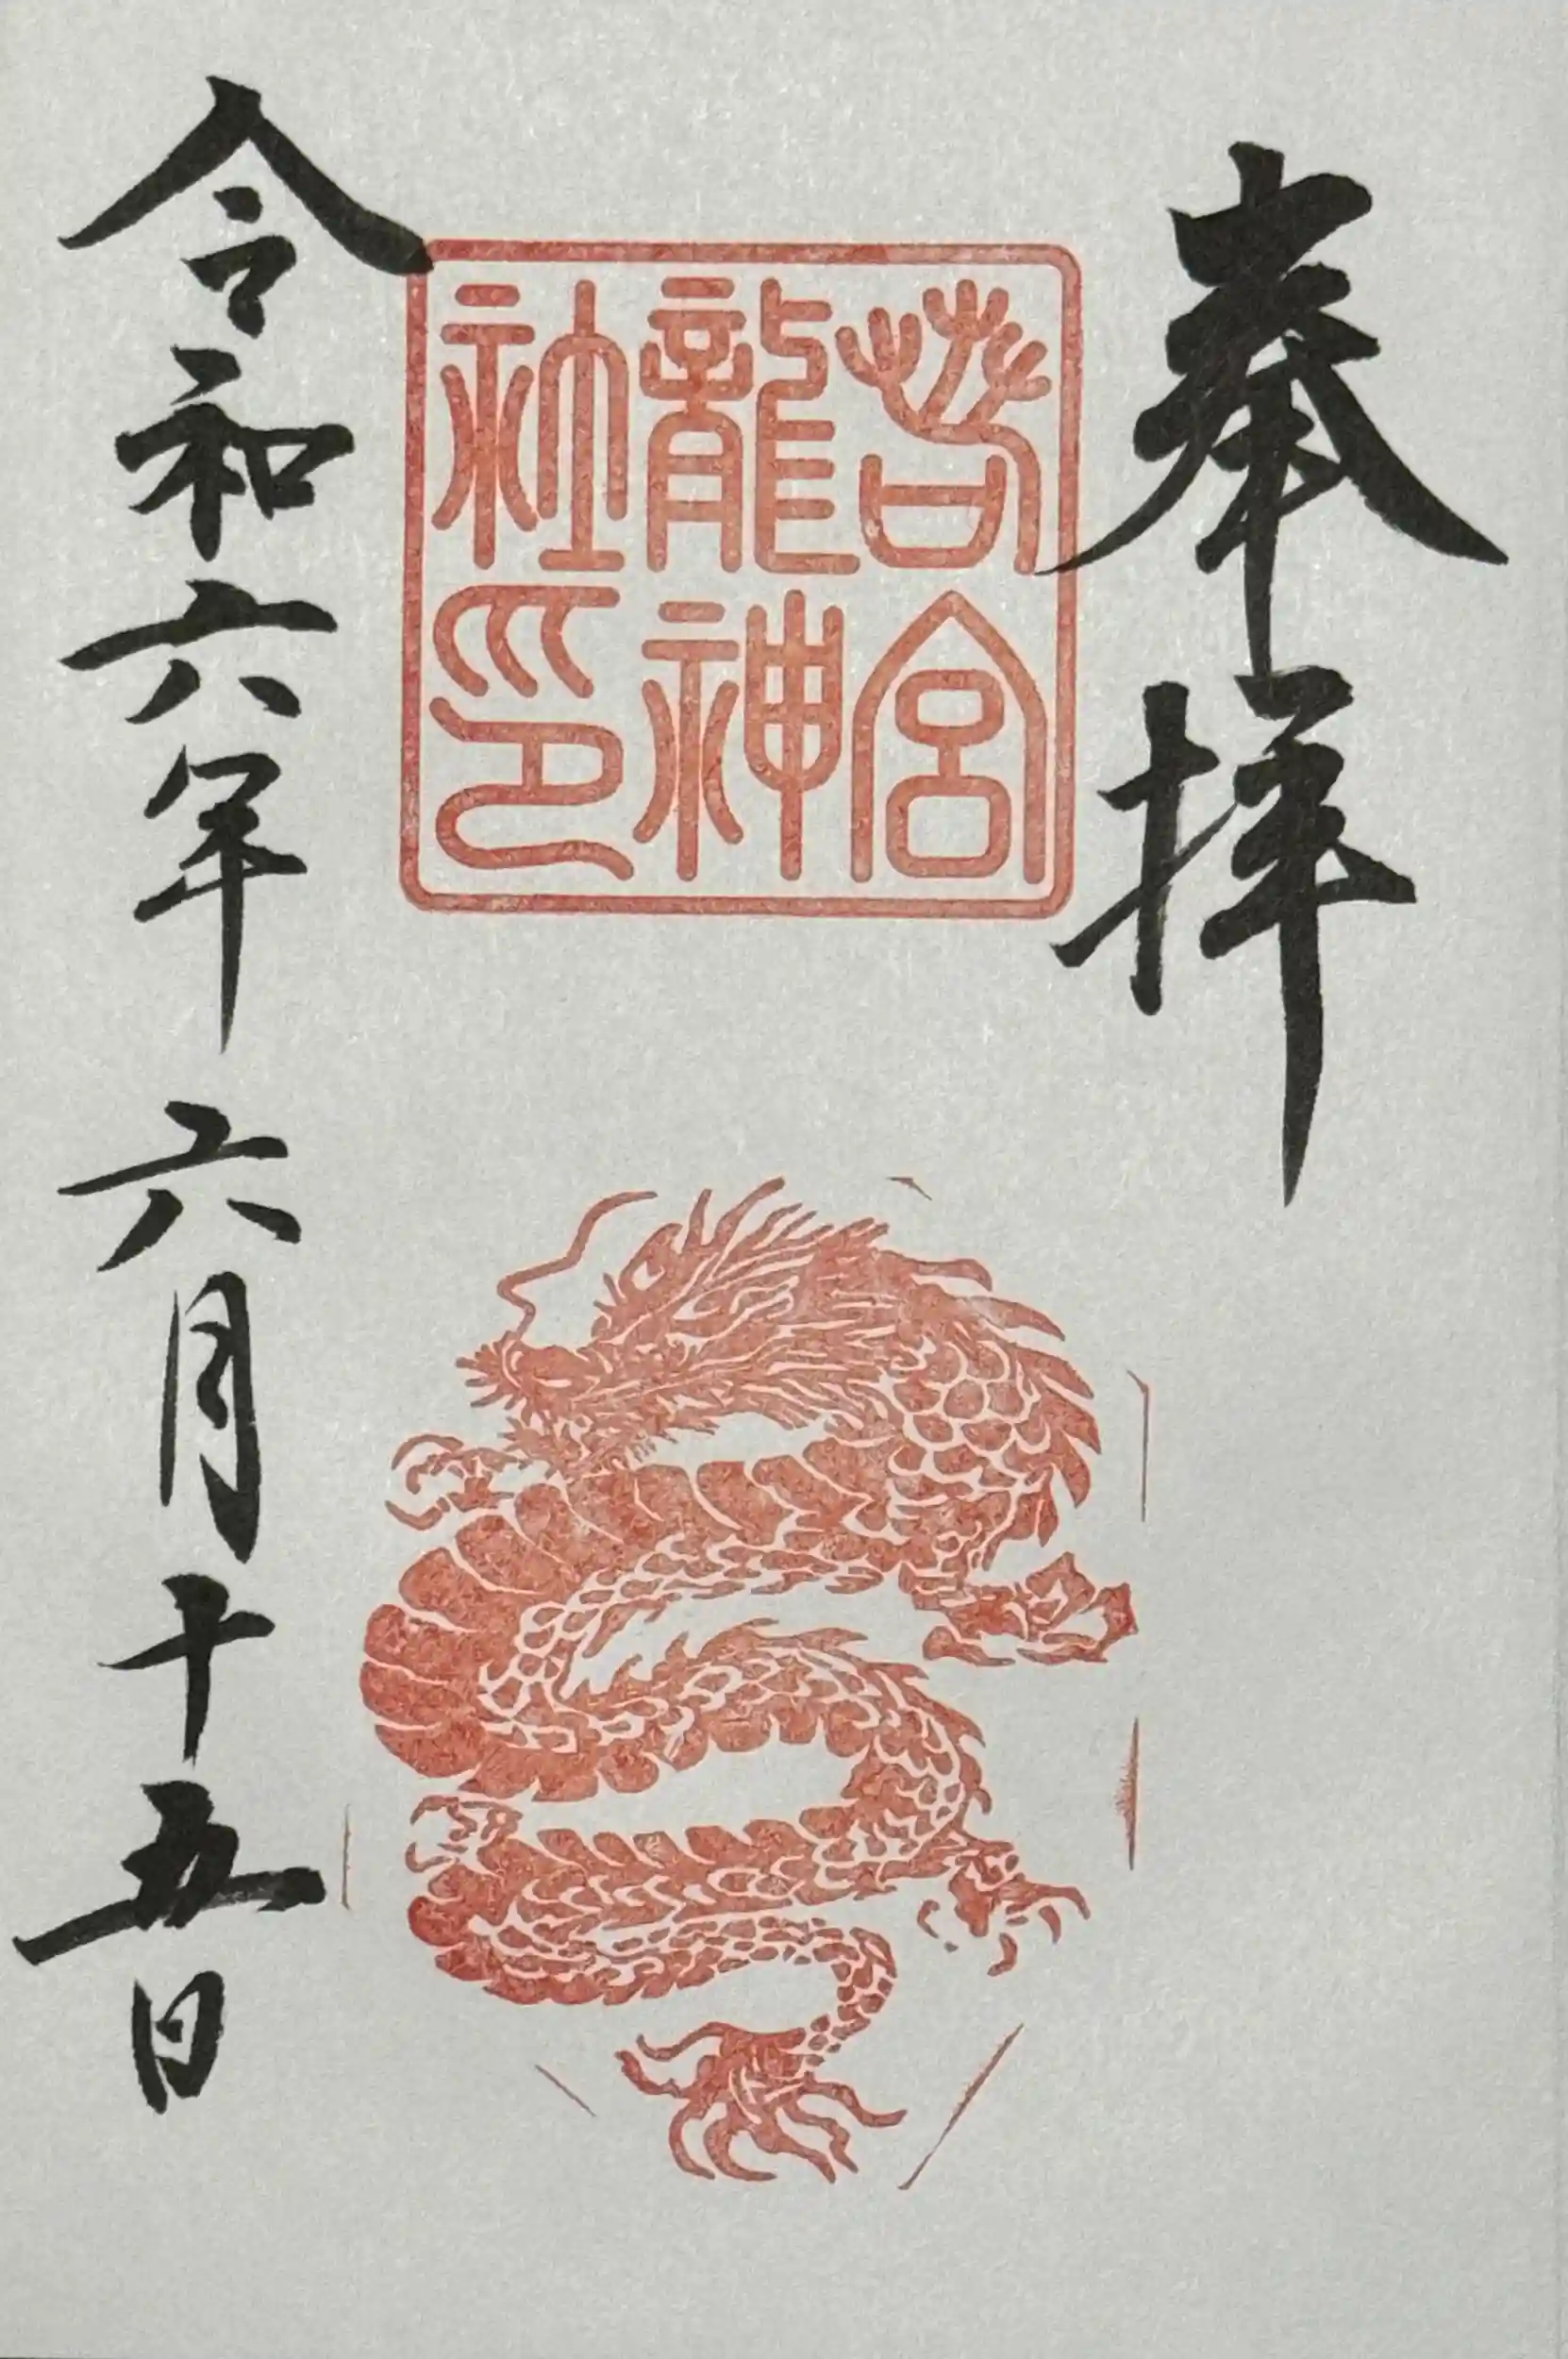 奉拝
若宮
龍神
社印
令和六年 六月十五日